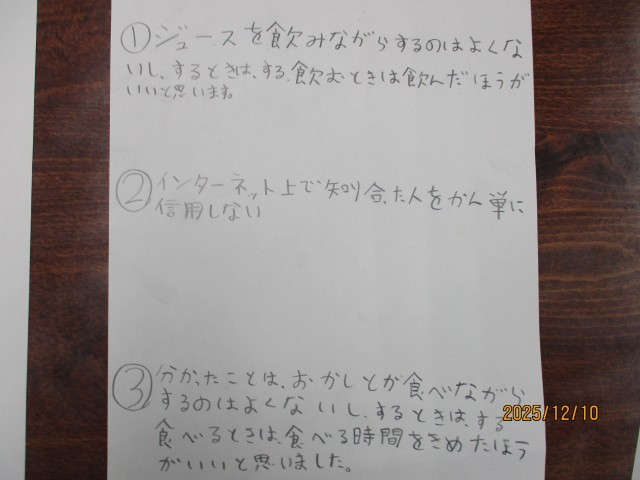 ①ジュースを飲みながらするのはよくな
いし、するときは、する、飲むときは飲んだほうが
いいと思います。
②インターネット上で知り合った人をかん単に
信用しない
③分かったことは、おかしとか食べながら
するのはよくないし、するときは、する
食べるときは、食べる時間をきめたほう
がいいと思いました。
2025/12/10